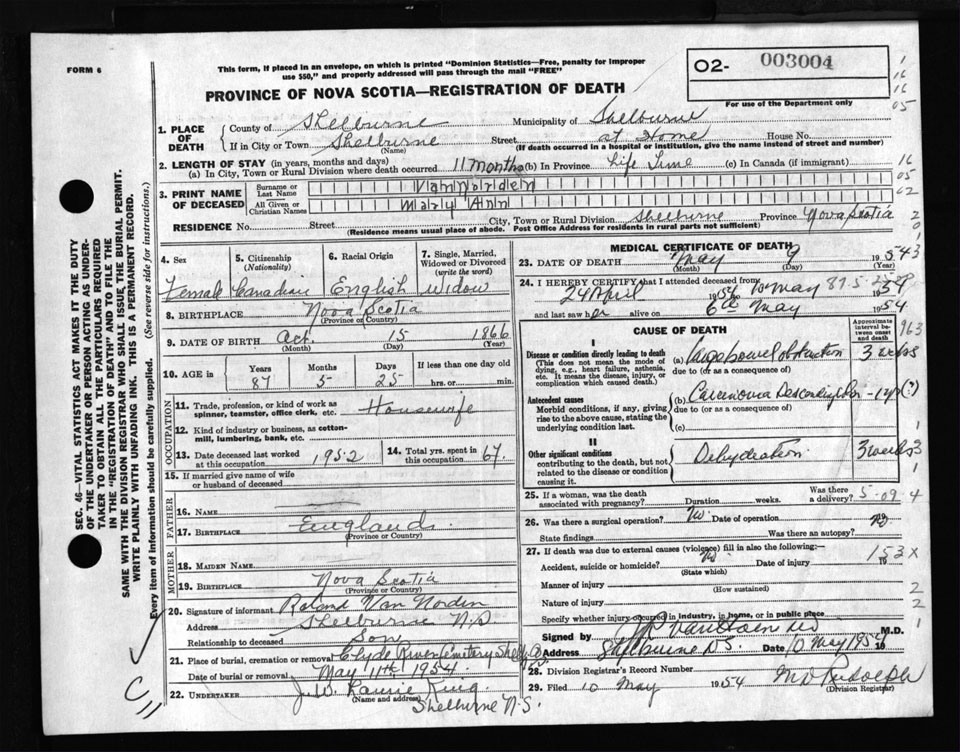 FORM 6
This form, if placed in an envelope, on which is printed "Dominion Statistics—Free, penalty for improper
use $50," and properly addressed will pass through the mail "FREE"
PROVINCE OF NOVA SCOTIA—REGISTRATION OF DEATH
02- 003004
For use of the Department only
1
16
16
05
1. PLACE OF DEATH { County of Shelburne Municipality of Shelburne
If in City or Town Shelburne Street at Home House No.
(Name) (If death occurred in a hospital or institution, give the name instead of street and number)
2. LENGTH OF STAY (in years, months and days)
(a) In City, Town or Rural Division where death occurred 11 months (b) In Province Life Time (c) In Canada (if immigrant) 16
05
3. PRINT NAME OF DECEASED { Surname or Last Name VanNorden 02
All Given or Christian Names Mary Ann
RESIDENCE No. Street City, Town or Rural Division Shelburne Province Nova Scotia
(Residence means usual place of abode. Post Office Address for residents in rural parts not sufficient)
SEC. 46—VITAL STATISTICS ACT MAKES IT THE DUTY
OF THE UNDERTAKER OR PERSON ACTING AS UNDER-
TAKER TO OBTAIN ALL THE PARTICULARS REQUIRED
IN THE "REGISTRATION OF DEATH" AND TO FILE THE
SAME WITH THE DIVISION REGISTRAR WHO SHALL ISSUE THE BURIAL PERMIT.
WRITE PLAINLY WITH UNFADING INK. THIS IS A PERMANENT RECORD.
Every item of information should be carefully supplied. (See reverse side for instructions.)
4. Sex Female
5. Citizenship (Nationality) Canadian
6. Racial Origin English
7. Single, Married, Widowed or Divorced (write the word) Widow
8. BIRTHPLACE Nova Scotia
(Province or Country)
9. DATE OF BIRTH Oct. 15 1866
(Month) (Day) (Year)
10. AGE in Years Months Days If less than one day old
87 5 25 hrs. or min.
OCCUPATION
11. Trade, profession, or kind of work as
spinner, teamster, office clerk, etc. Housewife
12. Kind of industry or business, as cotton-
mill, lumbering, bank, etc.
13. Date deceased last worked at this occupation 1952
14. Total yrs. spent in this occupation 67.
15. If married give name of wife
or husband of deceased
FATHER
16. NAME
17. BIRTHPLACE England
(Province or Country)
MOTHER
18. MAIDEN NAME
19. BIRTHPLACE Nova Scotia
(Province or Country)
20. Signature of informant Roland Van Norden
Address Shelburne N.S
Relationship to deceased Son
21. Place of burial, cremation or removal Clyde River Cemetery
Date of burial or removal May 11th 1954.
22. UNDERTAKER J.W. Laurie King.
(Name and address)
Shelburne N.S.
MEDICAL CERTIFICATE OF DEATH
23. DATE OF DEATH May 9 1954
(Month) (Day) (Year)
24. I HEREBY CERTIFY that I attended deceased from
24 April 1954 to May 1954
and last saw her alive on 6th May 1954
CAUSE OF DEATH
Approximate interval between onset and death
I
Disease or condition directly leading to death
(This does not mean the mode of
dying, e.g., heart failure, asthenia,
etc. It means the disease, injury, or
complication which caused death.)
(a) Large bowel obstruction 3 weeks
due to (or as a consequence of)
Antecedent causes
Morbid conditions, if any, giving
rise to the above cause, stating the
underlying condition last.
(b) Carcinoma Descending Colon - 1 yr (?)
due to (or as a consequence of)
(c)
II
Other significant conditions
contributing to the death, but not
related to the disease or condition
causing it.
Dehydration 3 weeks
25. If a woman, was the death associated with pregnancy? Duration weeks. Was there a delivery? 5-09 4
26. Was there a surgical operation? No Date of operation
State findings Was there an autopsy? No
27. If death was due to external causes (violence) fill in also the following:—
Accident, suicide or homicide? No Date of injury 19 153 X
(State which)
Manner of injury
(How sustained)
Nature of injury
Specify whether injury occurred in industry, in home, or in public place
Signed by M.D.
Address Shelburne N.S. Date 10 May 1954
28. Division Registrar's Record Number
29. Filed 10 May 1954 M D Rudolph
(Division Registrar)